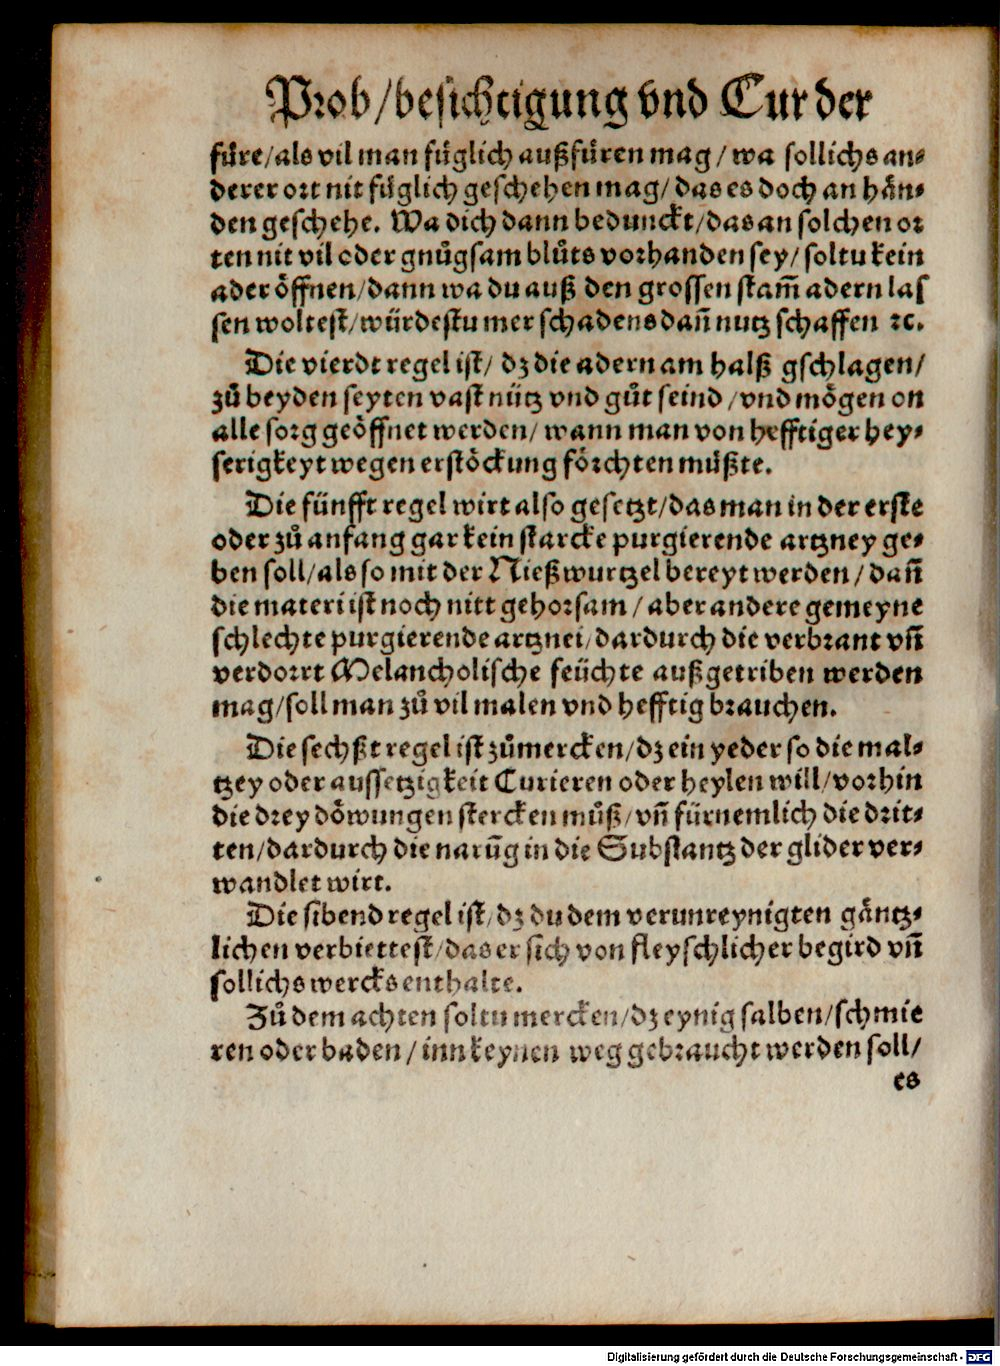 Prob/besichtigung vnd Cur der
fuͤre/als vil man fuͤglich außfuͤren mag/wa sollichs an⸗
derer ort nit fuͤglich geschehen mag/das es doch an haͤn⸗
den geschehe. Wa dich dann bedunckt/das an solchen or
ten nit vil oder gnuͦgsam bluͦts vorhanden sey/soltu kein
ader oͤffnen/dann wa du auß den grossen stam̃ adern las
sen woltest/wuͤrdestu mer schadens dañ nutz schaffen ꝛc.
Die vierdt regel ist/dz die adern am halß gschlagen/
zuͦ beyden seyten vast nuͤtz vnd guͦt seind/vnd moͤgen on
alle sorg geoͤffnet werden/wann man von hefftiger hey⸗
serigkeyt wegen erstoͤckung foͤrchten muͤßte.
Die fuͤnfft regel wirt also gesetzt/das man in der erste
oder zuͦ anfang gar kein starcke purgierende artzney ge⸗
ben soll/als so mit der Nießwurtzel bereyt werden/dañ
die materi ist noch nitt gehorsam/aber andere gemeyne
schlechte purgierende artznei/dardurch die verbrant vñ
verdorrt Melancholische feuͤchte außgetriben werden
mag/soll man zuͦ vil malen vnd hefftig brauchen.
Die sechßt regel ist zuͦmercken/dz ein yeder so die mal⸗
tzey oder aussetzigkeit Curieren oder heylen will/vorhin
die drey doͤwungen stercken muͦß/vñ fuͤrnemlich die drit⸗
ten/dardurch die narũg in die Substantz der glider ver⸗
wandlet wirt.
Die sibend regel ist/dz du dem verunreynigten gaͤntz⸗
lichen verbiettest/das er sich von fleyschlicher begird vñ
sollichs wercks enthalte.
Zuͦ dem achten soltu mercken/dz eynig salben/schmie
ren oder baden/inn keynen weg gebraucht werden soll/
es
Digitalisierung gefördert durch die Deutsche Forschungsgemeinschaft - DFG